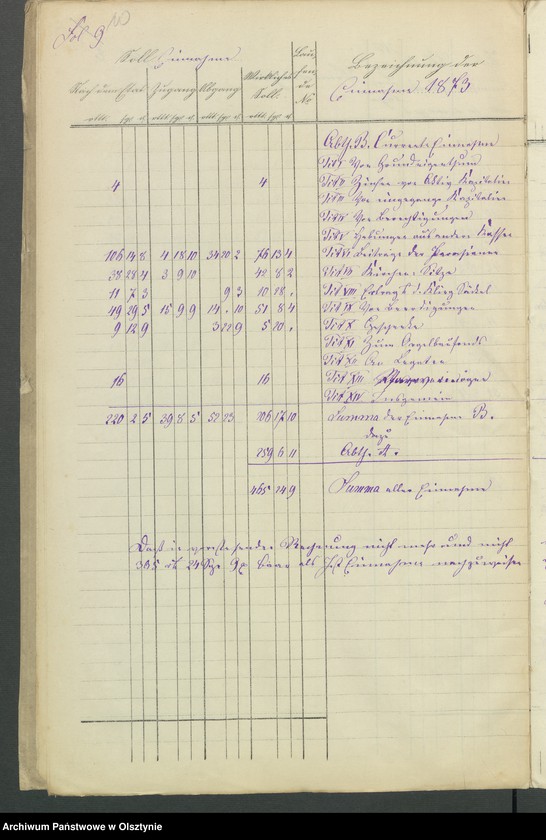 Fol 9
Soll Einnahme
Lau-
fen-
de
No
Nach dem Etat Zugang Abgang Wirkliches
Soll.
Bezeichnung der
Einnahme 1873
Abth. B. Currente Einnahme
Tit I Von Grundeigenthum
4 4 Tit II Zinsen von Kapitalien
Tit III Von eingegang. Kapitalien
Tit IV Von Berechtigungen
Tit V Hebungen aus andern Kassen
106 14 8 4 18 10 34 20 2 76 13 4 Tit VI Beiträge der
38 28 4 3 9 10 42 8 2 Tit VII Kirchen-Sitze
11 7 3 9 3 10 28 . Tit VIII Ertrag d. Kling Säckel
49 29 5 15 9 9 14 . 10 51 8 4 Tit IX Von Beerdigungen
9 12 9 3 22 9 5 20 . Tit X Geschenke
Tit XI Zum Orgelbaufonds
Tit XII An Legaten
16 16 Tit XIII
Tit XIV Insgemein
220 2 5 39 8 5 52 23 206 17 10 Summa der Einnahme B.
dazu
259 6 11 Abth. A.
465 24 9 Summa aller Einnahme
Daß in vorstehender Rechnung nicht mehr und nicht
24 Sgr 9 baar als Einnahmen nachzuweisen
Archiwum Państwowe w Olsztynie